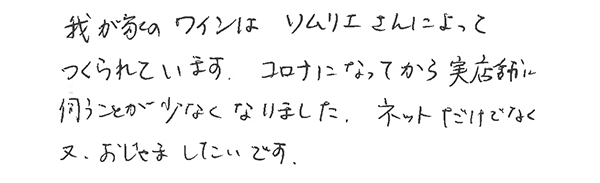 我が家のワインは ソムリエさんによって
つくられています. コロナになってから実店舗に
伺うことが少なくなりました. ネットだけでなく
又、おじゃましたいです.